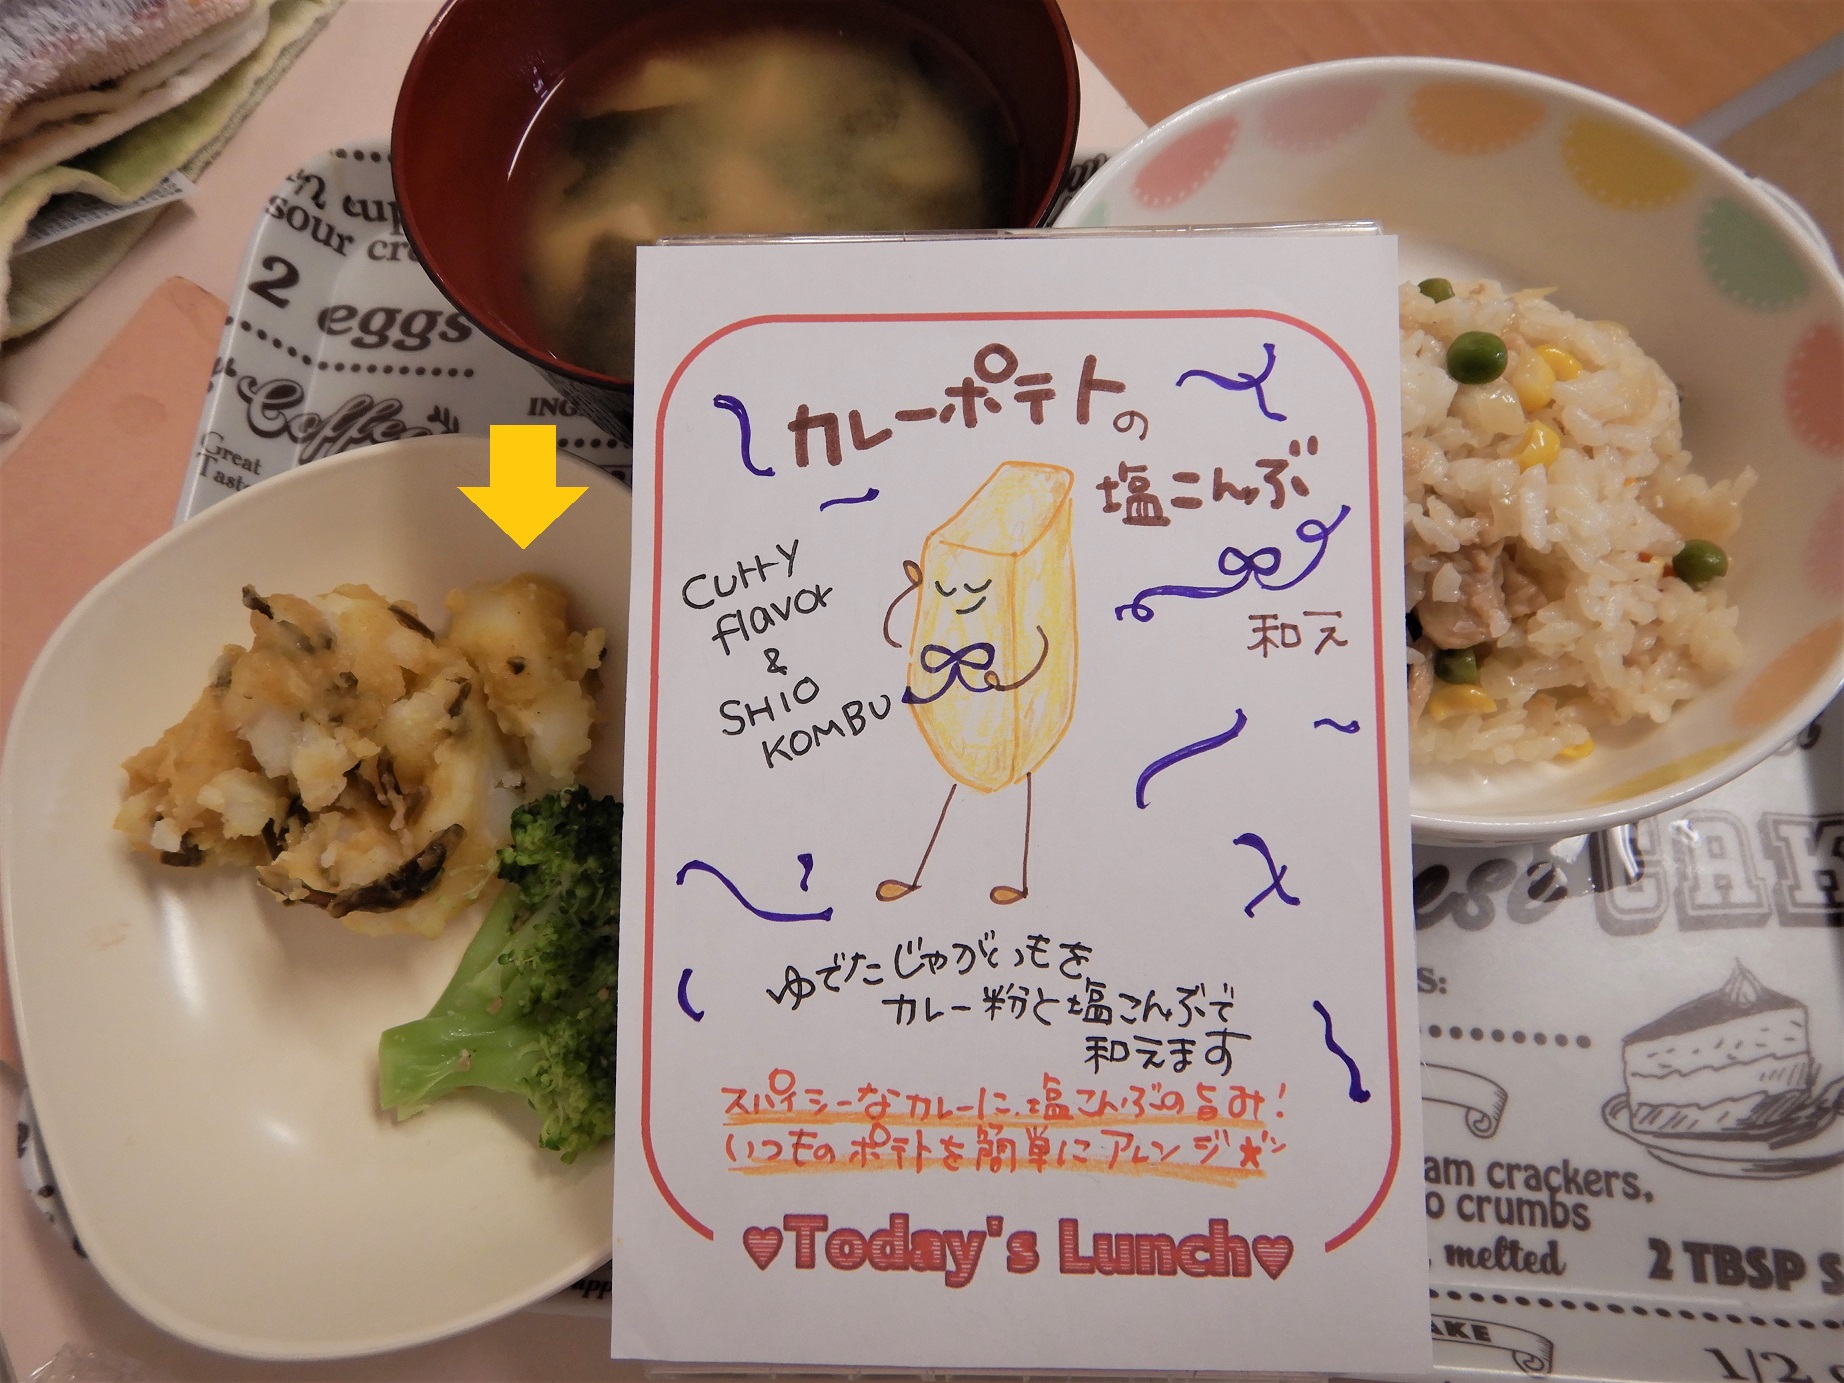 カレーポテトの
塩こんぶ
和え
Curry
flavor
&
SHIO
KOMBU
ゆでたじゃがいもを
カレー粉と塩こんぶで
和えます
スパイシーなカレーに、塩こんぶの旨み!
いつものポテトを簡単にアレンジ★
♥Today's Lunch♥
sour
2 eggs
Coffee
Great
Taste
CAK
am crackers,
o crumbs
, melted
2 TBSP S
AKE
1/2